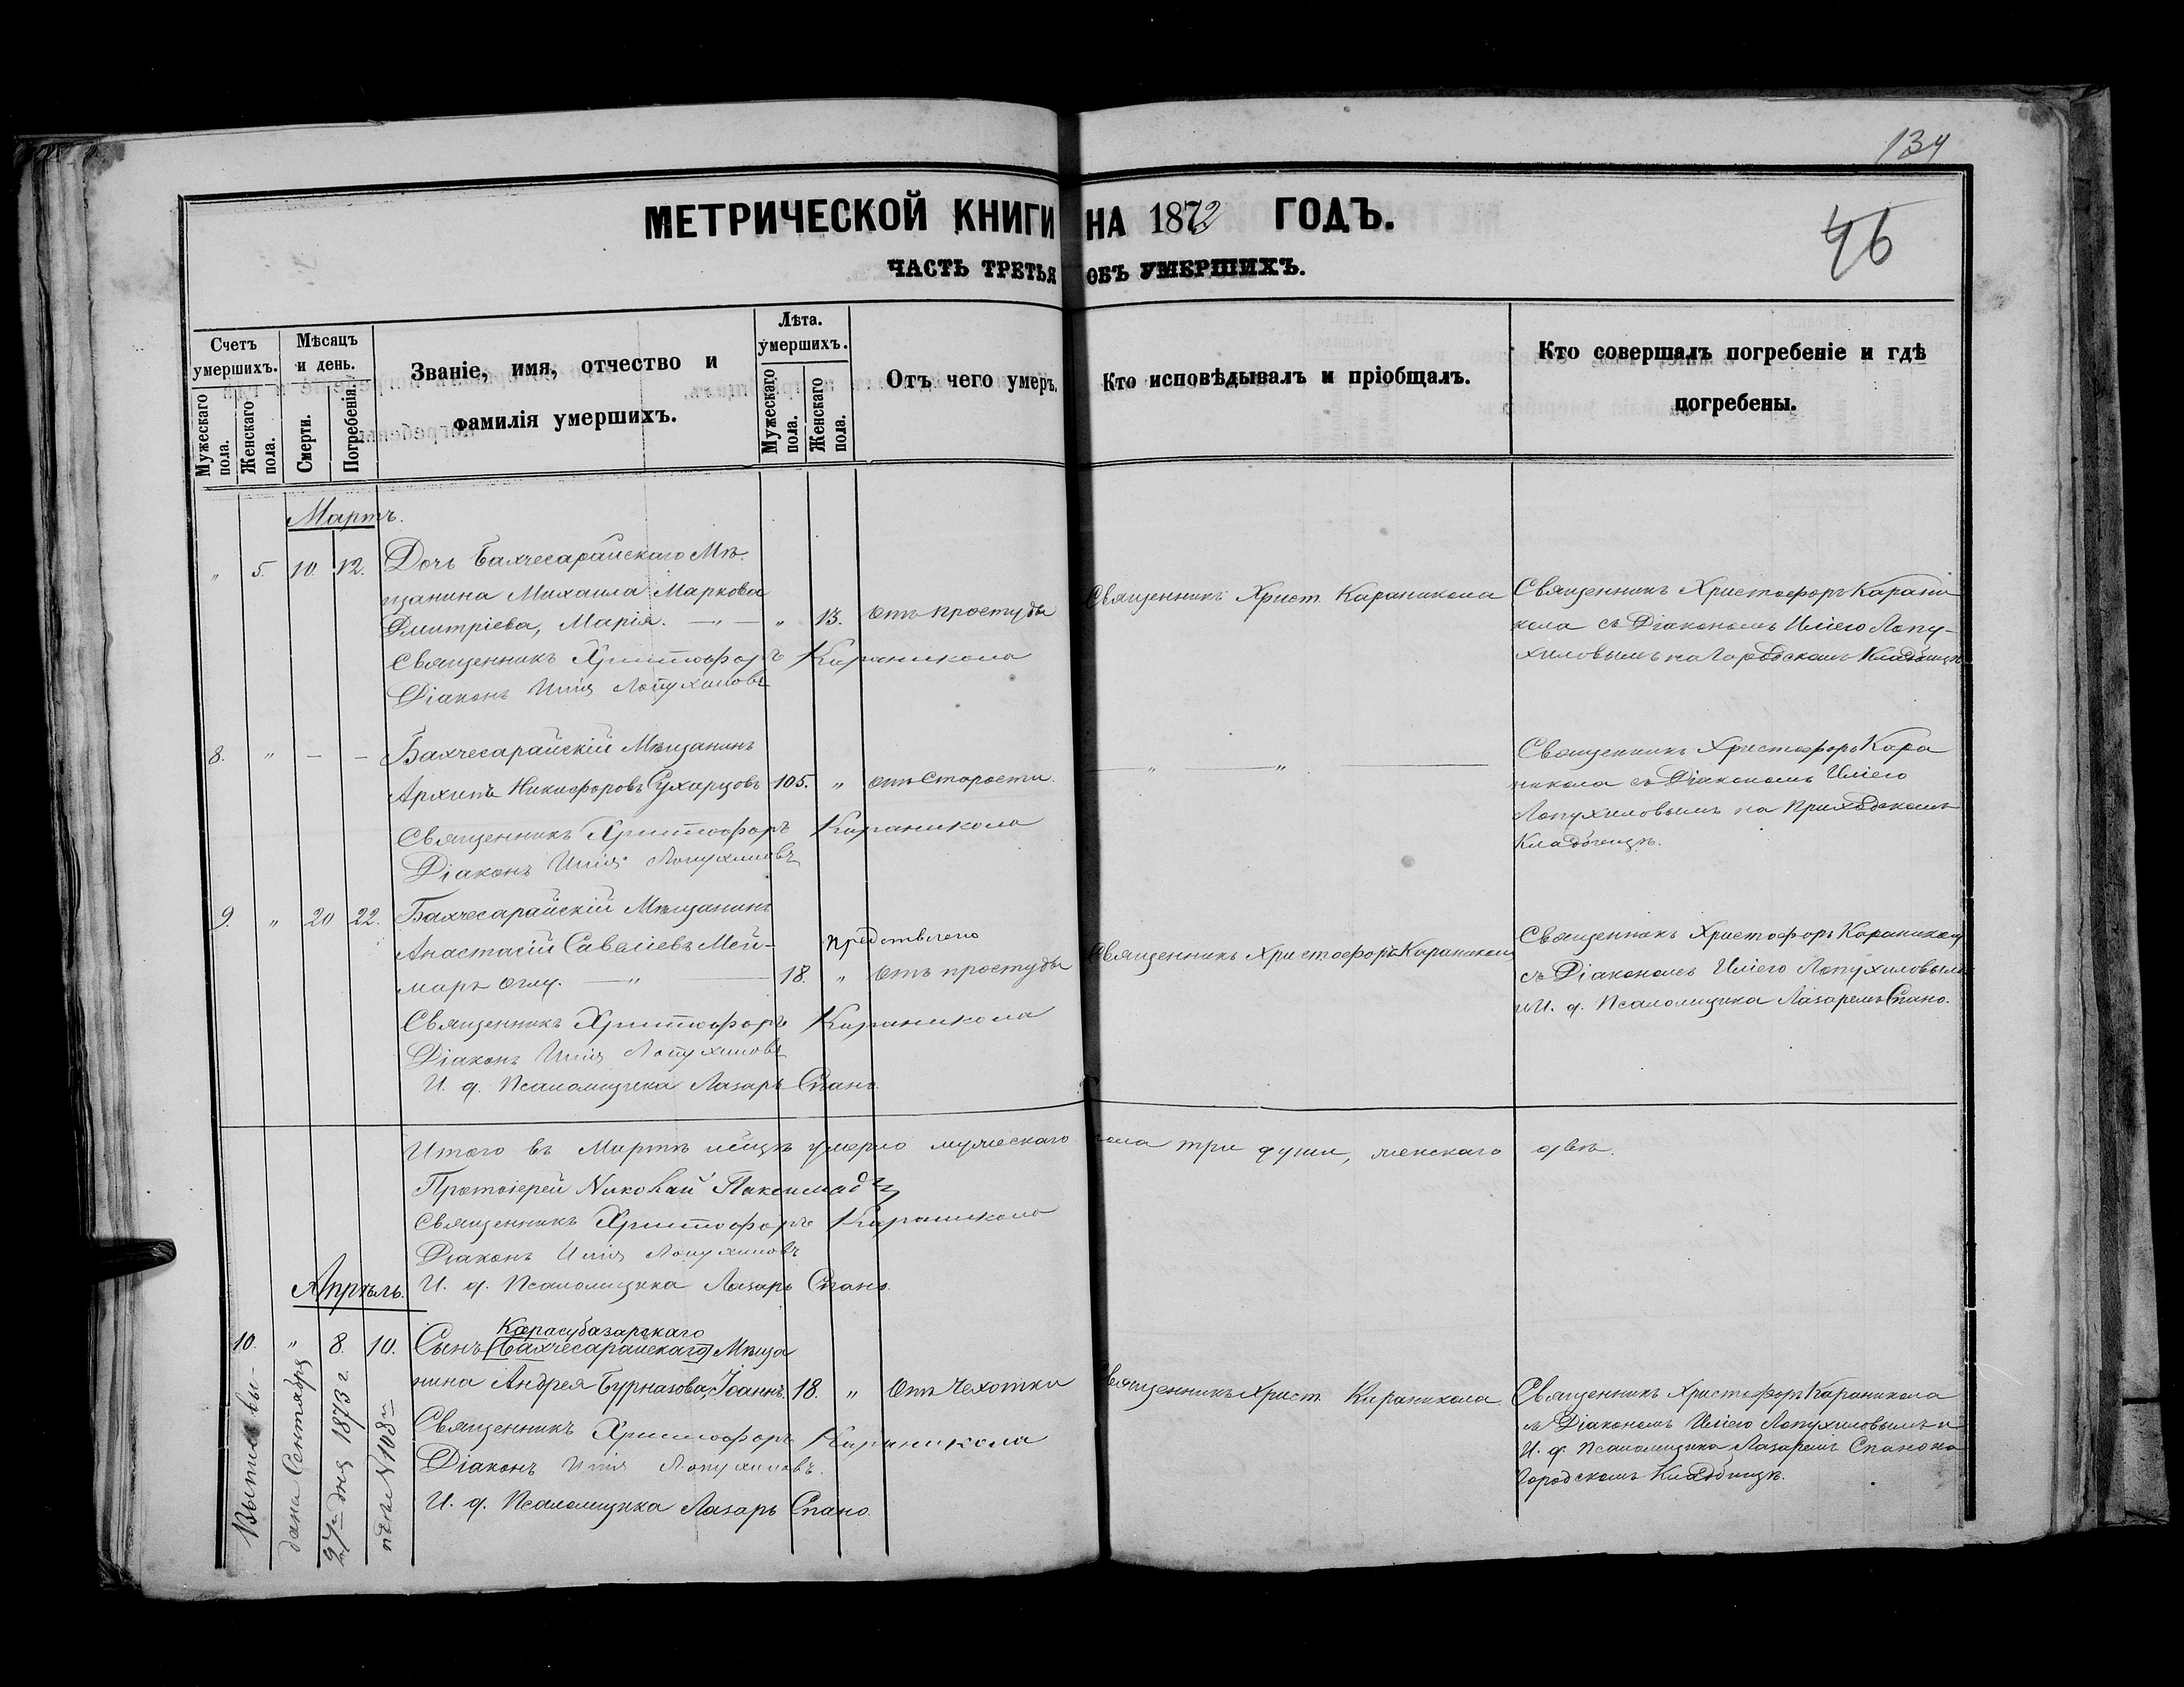 134
46
МЕТРИЧЕСКОЙ КНИГИ НА 1872 ГОДЪ.
ЧАСТЬ ТРЕТЬЯ ОБЪ УМЕРШИХЪ.
Счетъ умершихъ.
Мужескаго пола.
Женскаго пола.
Мѣсяцъ и день.
Смерти.
Погребенія.
Званіе, имя, отчество и
фамилія умершихъ.
Лѣта.
умершихъ.
Мужескаго пола.
Женскаго пола.
Отъ чего умеръ.
Кто исповѣдывалъ и пріобщалъ.
Кто совершалъ погребеніе и гдѣ
погребены.
Мартъ.
" 5. 10. 12. Дочь Бахчесарайскаго Мѣ-
щанина Михаила Маркова
Дмитріева, Марія. — " — " 13. Отъ простуды
Священникъ Христ. Караникола
Священникъ Христофоръ Карани
кола съ Діакономъ Иліею Лопу-
хиловымъ на Городскомъ Кладбищѣ
Священникъ Христофоръ Караникола
Діаконъ Илія Лопухиловъ
8. " — — Бахчесарайскій Мѣщанинъ
Архипъ Никифоровъ Сухарцовъ 105. " отъ Старости.
— " — " —
Священникъ Христофоръ Кара
никола съ Діакономъ Иліею
Лопухиловымъ на Приходскомъ
Кладбищѣ.
Священникъ Христофоръ Караникола
Діаконъ Илія Лопухиловъ
9. " 20 22. Бахчесарайскій Мѣщанинъ
Анастасій Савеліевъ Мей-
маръ Оглу. — " — 18. " Отъ простуды
Священникъ Христофоръ Караникола
Священникъ Христофоръ Караникола
съ Діакономъ Иліею Лопухиловымъ
и И. д. Псаломщика Лазаремъ Спано.
Священникъ Христофоръ Караникола
Діаконъ Илія Лопухиловъ
И. д. Псаломщика Лазарь Спано
Итого въ Мартѣ мѣсяцѣ умерло мужескаго пола три души, женскаго двѣ.
Протоіерей Николай Паксимади
Священникъ Христофоръ Караникола
Діаконъ Илія Лопухиловъ
И. д. Псаломщика Лазарь Спано.
Апрѣль.
Карасубазарскаго
10. " 8. 10. Сынъ [Бахчесарайскаго] Мѣща
нина Андрея Бурназова, Іоаннъ. 18. " Отъ Чехотки
Священникъ Христ. Караникола
Священникъ Христофоръ Караникола
съ Діакономъ Иліею Лопухиловымъ и
И. д. Псаломщика Лазаремъ Спано на
Городскомъ Кладбищѣ.
Священникъ Христофоръ Караникола
Діаконъ Илія Лопухиловъ.
И. д. Псаломщика Лазарь Спано.
Выпись вы-
дана Сентября
27го дня 1873 г.
№ 108й